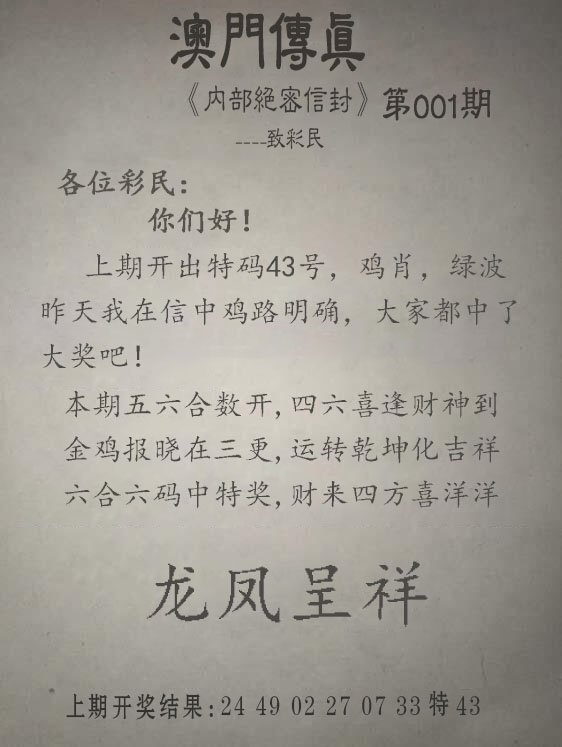 澳門傳眞
《内部絕密信封》第001期
----致彩民
各位彩民：
你们好！
上期开出特码43号，鸡肖，绿波
昨天我在信中鸡路明确，大家都中了
大奖吧！
本期五六合数开,四六喜逢财神到
金鸡报晓在三更,运转乾坤化吉祥
六合六码中特奖,财来四方喜洋洋
龙凤呈祥
上期开奖结果:24 49 02 27 07 33特43